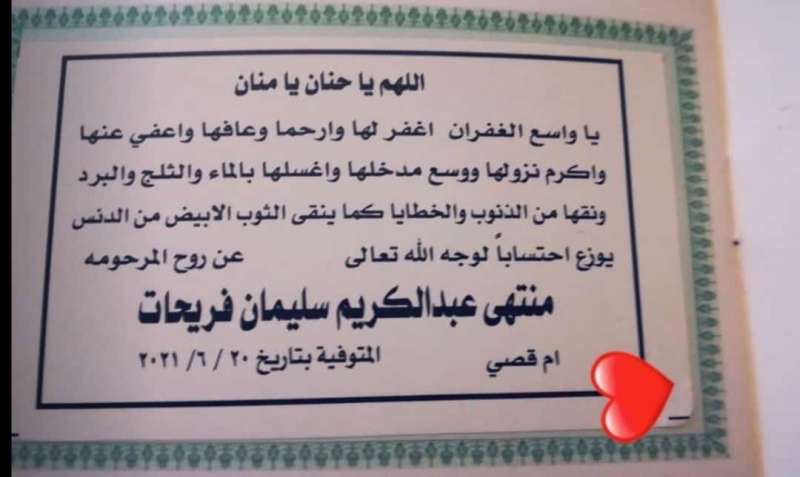 اللهم يا حنان يا منان
يا واسع الغفران اغفر لها وارحما وعافها واعفي عنها
واكرم نزولها ووسع مدخلها واغسلها بالماء والثلج والبرد
ونقها من الذنوب والخطايا كما ينقى الثوب الابيض من الدنس
يوزع احتساباً لوجه الله تعالى عن روح المرحومه
منتهى عبدالكريم سليمان فريحات
ام قصي المتوفية بتاريخ ٢٠ / ٦/ ٢٠٢١